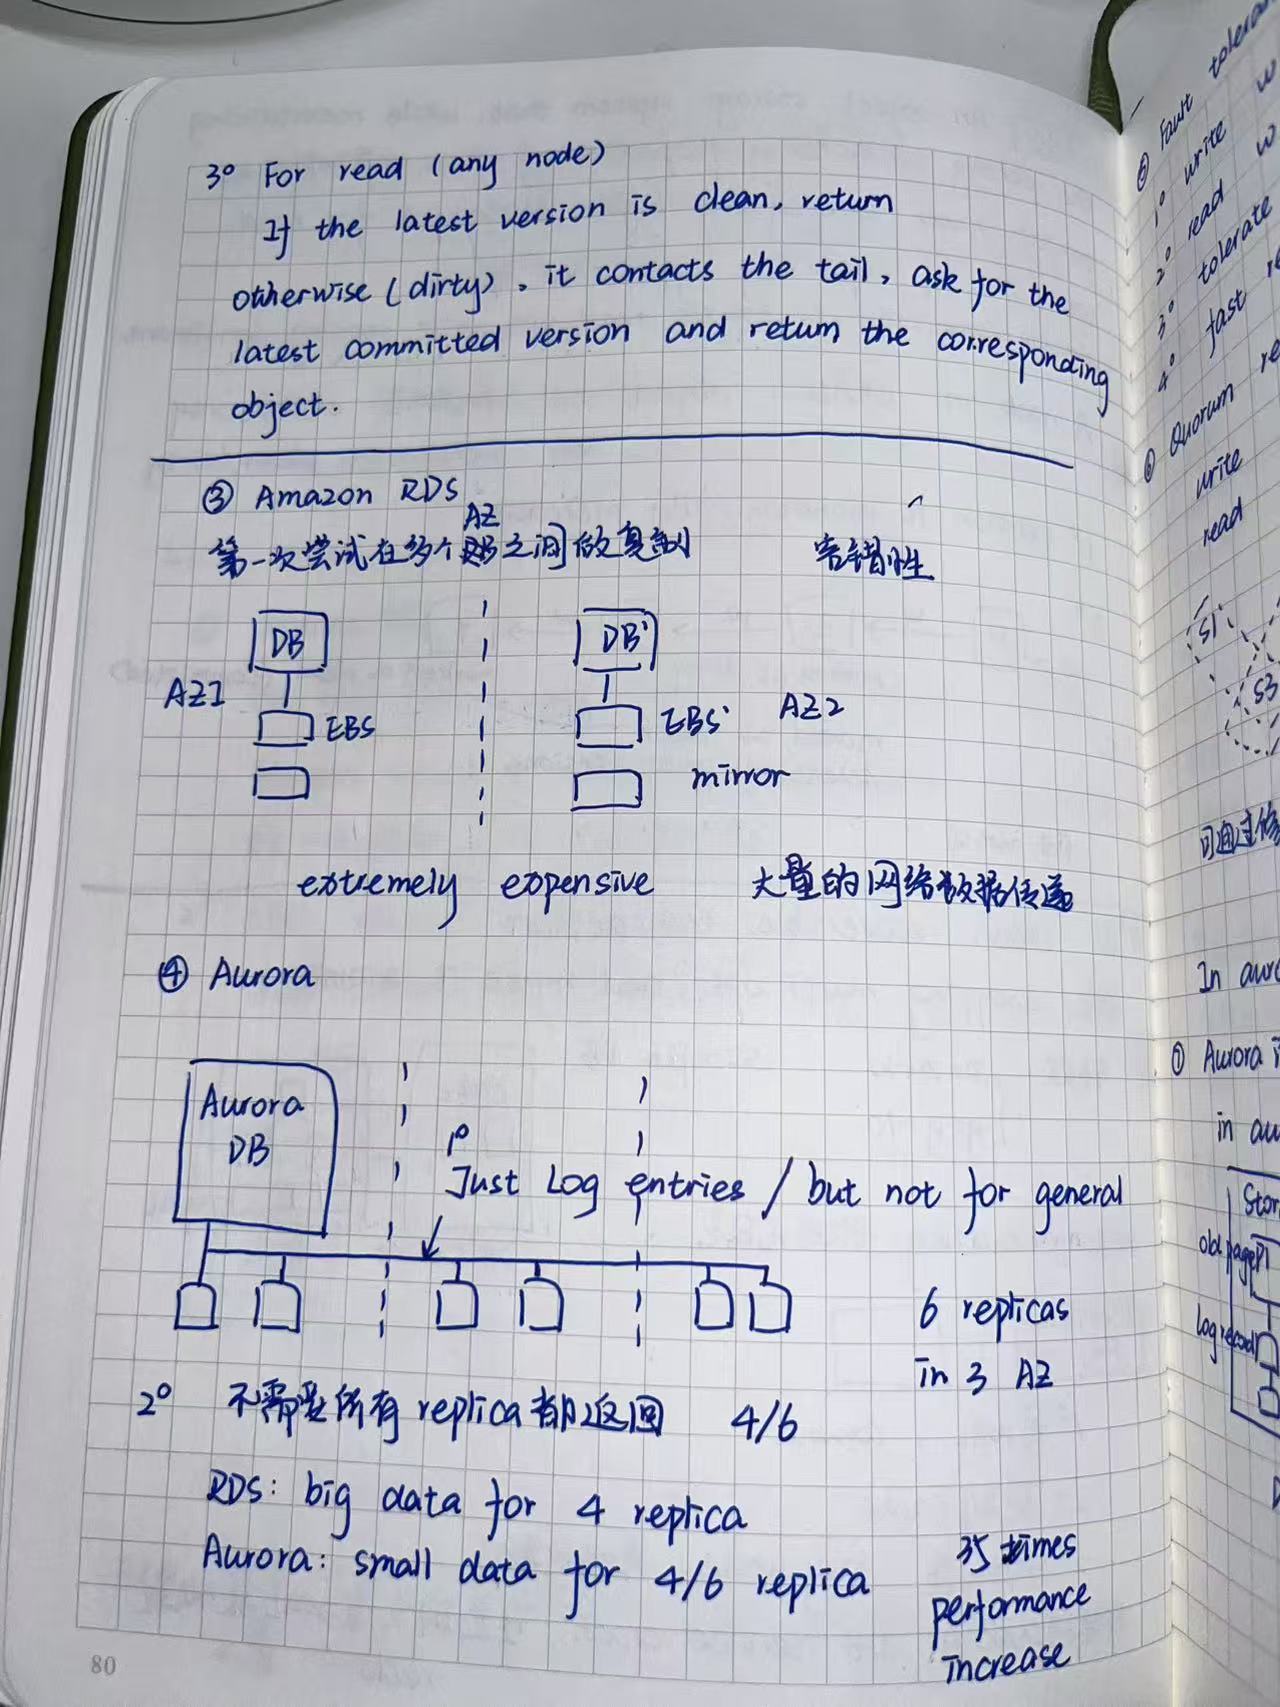 3° For read (any node)
If the latest version is clean, return
otherwise (dirty), it contacts the tail, ask for the
latest committed version and return the corresponding
object.
③ Amazon RDS
AZ
第一次尝试在多个之间做复制 容错性
DB DB'
AZ1 EBS EBS' AZ2
mirror
extremely expensive 大量的网络数据传递
④ Aurora
Aurora
DB
1°
Just Log entries / but not for general
6 replicas
in 3 AZ
2° 不需要所有replica都返回 4/6
RDS: big data for 4 replica
Aurora: small data for 4/6 replica
35 times
performance
increase
80
⑤ Fault toleran
1° write w
2° read w
3° tolerate
4° fast re
⑥ Quorum re
write
read
S1
S3
可通过修
In auro
① Aurora i
in au
Stor
old page P1
log record